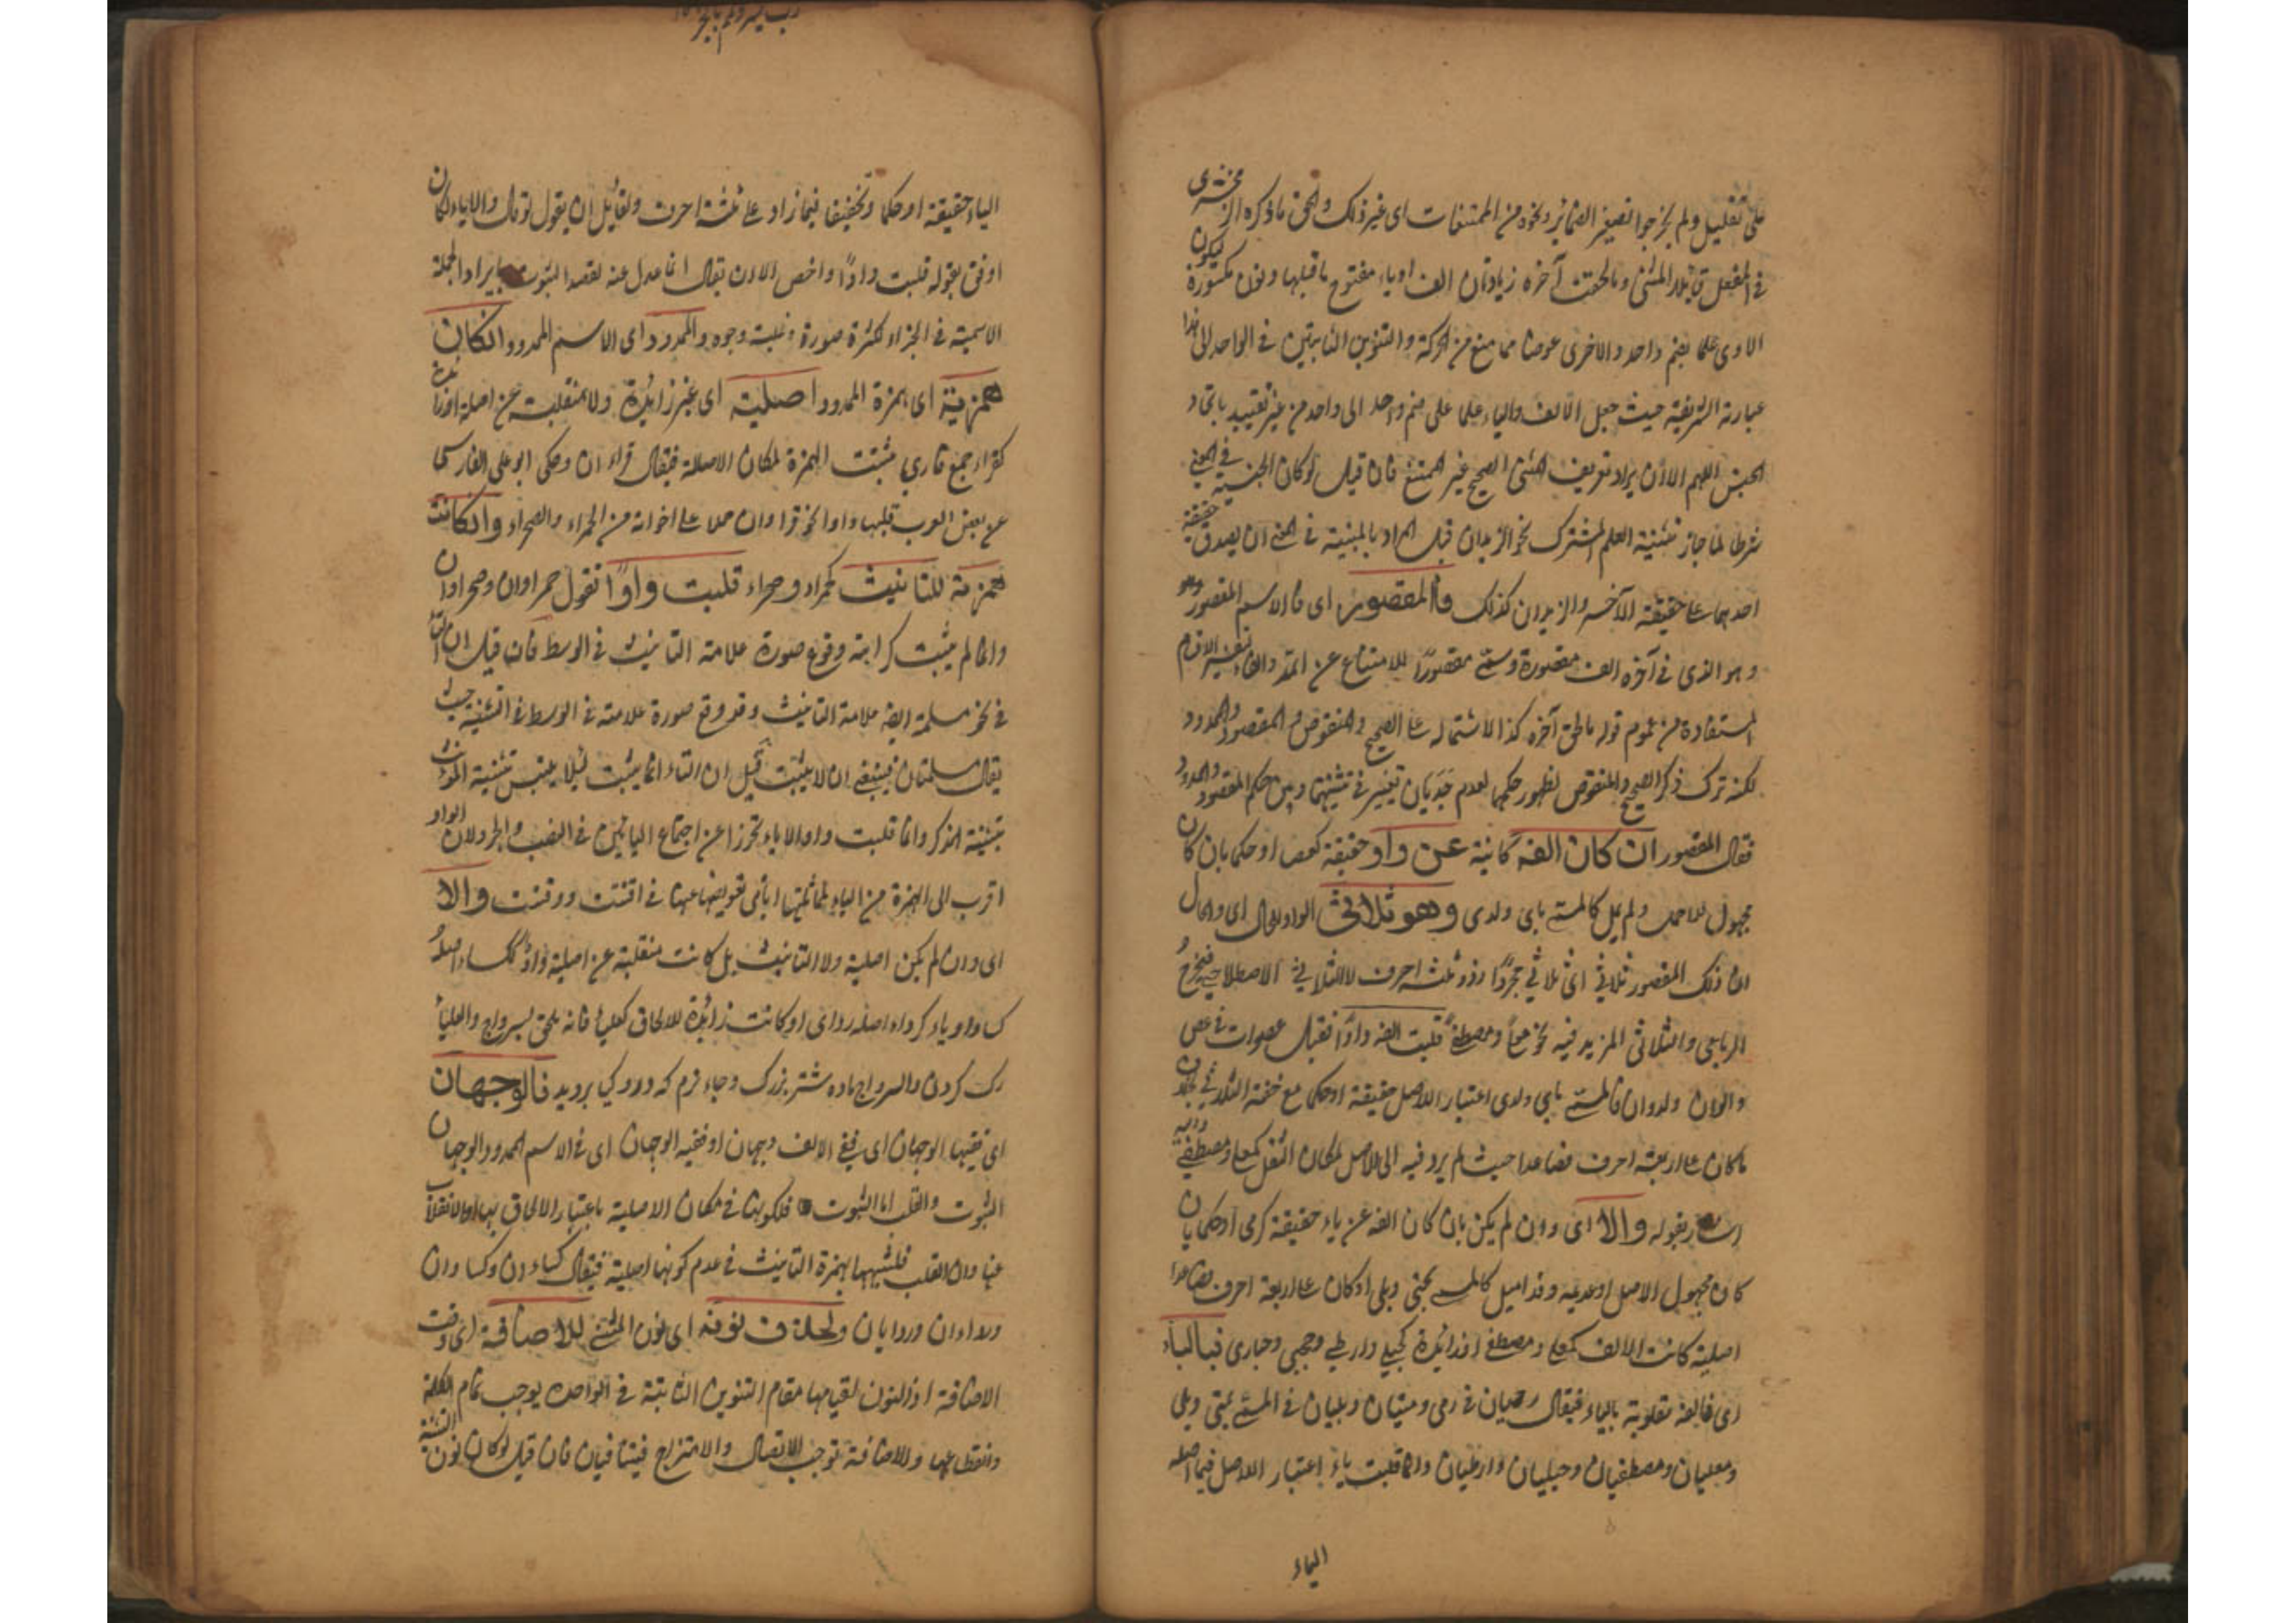 على تقليل ولم يخرجوا تصغير الضمائر ونحوه من الممتنعات اى غير ذلك والحق ما ذكره الزمخشرى
في المفصل قائلا المثنى ما لحقت آخره زيادتان الف او ياء مفتوح ما قبلها ونون مكسورة ليكون
الاولى علما بضم واحد والاخرى عوضا مما منع من الحركة والتنوين الثابتين في الواحد
عبارته الشريفة حيث جعل الالف والياء علما على ضم واحد الى واحد من غير تقييد باتحاد
الجنس اللهم الا ان يراد تعريف المثنى الصحيح غير الممتنع فان قيل لو كان الجنسية في المعنى
شرطا لما جاز تثنية العلم المشترك نحو الزيدان قيل المراد بالجنسية في المعنى ان يصدق حقيقة
احدهما على حقيقة الآخر والزيدان كذلك فالمقصور اى فالاسم المقصور
وهو الذى في آخره الف مقصورة وسمى مقصورا للامتناع عن المد والفاء لتفسير الاقسام
المستفادة من عموم قوله ما لحق آخره كذا لاشتماله على الصحيح والمنقوص والمقصور والممدود
لكنه ترك ذكر الصحيح والمنقوص لظهور حكمهما لعدم جريان تغيير في تثنيتهما وبين حكم المقصور والممدود
فقال المقصور ان كان الفه كائنة عن واو حقيقة كعصا او حكما بان كان
مجهول الاصل ولم يمل كالمسمى بالى ولدى وهو ثلاثى الواو للحال اى والحال
ان ذلك المقصور ثلاثى اى ثلاثى مجردا ذو ثلثة احرف لا الثلاثى الاصطلاحى فيخرج
الرباعى والثلاثى المزيد فيه نحو معلى ومصطفى قلبت الفه واوا فقيل عصوان في عصى
والوان ولدوان فالمسمى بالى ولدى اعتبار للاصل حقيقة او حكما مع خفة الثلاثى بخلاف
ما كان على اربعة احرف فصاعدا حيث لم يرد فيه الى الاصل لمكان الثقل كمعلى ومصطفى
اشار بقوله والا اى وان لم يكن بان كان الفه عن ياء حقيقة كرحى او حكما بان
كان مجهول الاصل او عديمه وقد اميل كالمسمى بمتى وبلى او كان على اربعة احرف فصاعدا
اصلية كانت الالف كمعلى ومصطفى او زائدة كحبلى وارطى وحبارى فبالياء
اى فالفه مقلوبة بالياء فيقال رحيان في رحى ومتيان وبليان في المسمى بمتى وبلى
ومعليان ومصطفيان وحبليان وارطيان وانما قلبت ياء اعتبار للاصل فيما اصله
الياء
الياء حقيقة او حكما وتخفيفا فيما زاد على ثلثة احرف ولقائل ان يقول لو قال والا ياء لكان
اوفق بقوله قلبت واوا واخص الا ان يقال انما عدل عنه لقصد الثبوت بايراد الجملة
الاسمية في الجزاء لكثرة صورة وغلبة وجوه والممدود اى الاسم الممدود ان كان
همزته اى همزة الممدود اصلية اى غير زائدة ولا منقلبة عن اصلية او زائدة
كقراء جمع قارى تثبت الهمزة لمكان الاصلة فيقال قراء ان وحكى ابو على الفارسى
عن بعض العرب قلبها واوا نحو قراوان حملا على اخواته من الحمراء والصحراء وان كانت
همزته للتانيث كحمراء وصحراء قلبت واوا تقول حمراوان وصحراوان
وانما لم يثبت كراهة وقوع صورة علامة التانيث في الوسط فان قيل ان التاء
في نحو مسلمة ايضا علامة التانيث وقد وقع صورة علامته في الوسط في التثنية حيث
يقال مسلمتان فينبغى ان لا يثبت قيل ان التاء انما يثبت لئلا يلتبس تثنية المؤنث
بتثنية المذكر وانما قلبت واوا لا ياء تحرزا عن اجتماع اليائين في النصب والجر ولان الواو
اقرب الى الهمزة من الياء لمماثلتها اياها في تعويضها عنها في اقتت ووقتت والا
اى وان لم يكن اصلية ولا للتانيث بل كانت منقلبة عن اصلية واو ككساء اصله
كساو او ياء كرداء اصله رداى او كانت زائدة للالحاق كعلباء فانه ملحق بسرداح والعلباء
رك كردن والسرداح ماده شتر بزرك وجاء نرم كه درو كى برويد فالوجهان
اى ففيها الوجهان اى في الالف وجهان او ففيه الوجهان اى في الاسم الممدود الوجهان
الثبوت والقلب اما الثبوت فلكونها في مكان الاصلية باعتبار الالحاق بها والانقلاب
عنها واما القلب فلشبهها بهمزة التانيث في عدم كونها اصلية فيقال كساء ان وكساوان
ورداءان وردايان ويحذف نونه اى نون المثنى للاضافة اى وقت
الاضافة اذ النون لقيامها مقام التنوين الثابتة في الواحد يوجب تمام الكلمة
وانقطاعها والاضافة توجب الاتصال والامتزاج فيتنافيان فان قيل لو كان نون التثنية